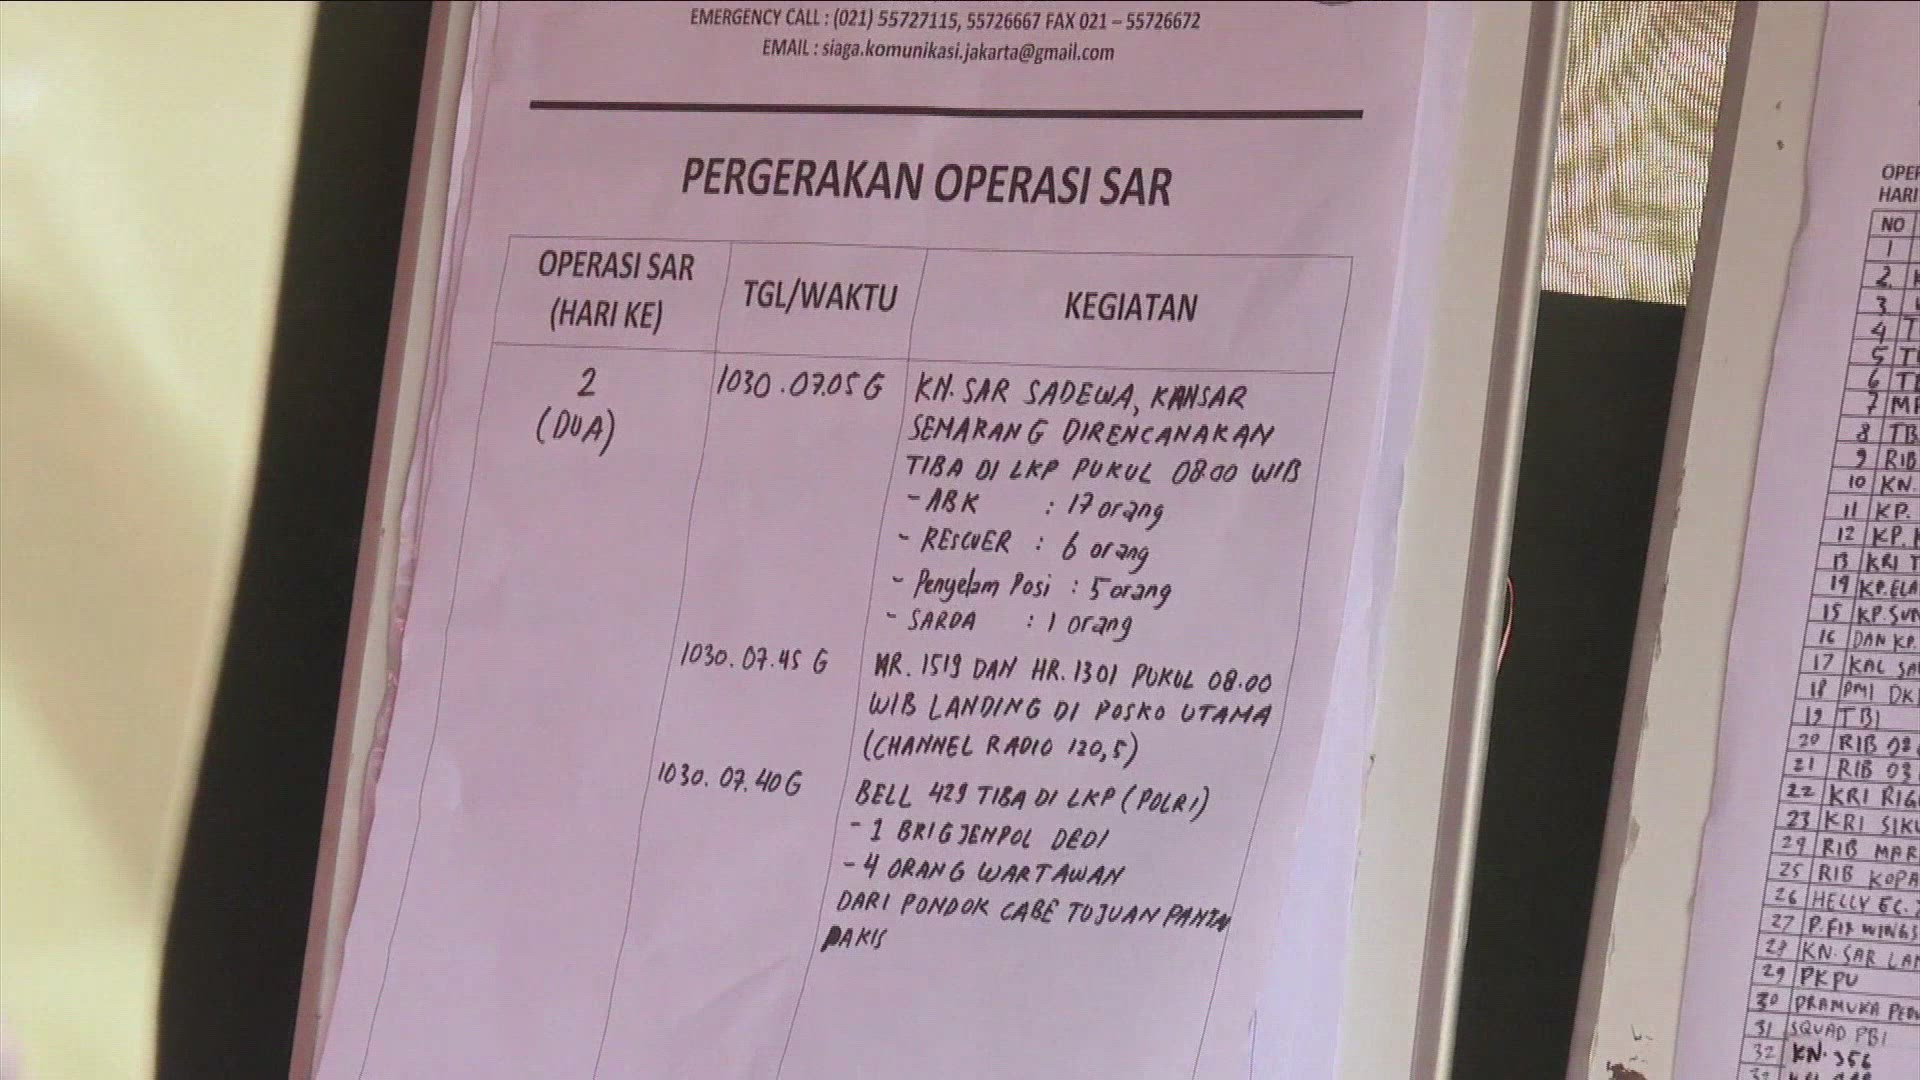 EMERGENCY CALL : (021) 55727115, 55726667 FAX 021 – 55726672
EMAIL : siaga.komunikasi.jakarta@gmail.com
PERGERAKAN OPERASI SAR
OPERASI SAR
(HARI KE)
TGL/WAKTU
KEGIATAN
2
(DUA)
1030.07.05 G
KN. SAR SADEWA, KANSAR
SEMARANG DIRENCANAKAN
TIBA DI LKP PUKUL 08.00 WIB
- ABK : 17 orang
- RESCUER : 6 orang
- Penyelam Posi : 5 orang
- SARDA : 1 orang
1030.07.45 G
HR. 1519 DAN HR. 1301 PUKUL 08.00
WIB LANDING DI POSKO UTAMA
(CHANNEL RADIO 120,5)
1030.07.40 G
BELL 429 TIBA DI LKP (POLRI)
- 1 BRIGJENPOL DEDI
- 4 ORANG WARTAWAN
DARI PONDOK CABE TUJUAN PANTAI
PAKIS
NO
1
2.
3
4
5
6
7
8 TB
9 RIB
10 KN.
11 KP.
12 KP.
13 KRI
14 KP.
15 KP.
16 DAN KP.
17 KAL
18 PMI
19 TBI
20 RIB 02
21 RIB 03
22 KRI
23 KRI
24 RIB
25 RIB
26 HELLY
27
28 KN.SAR
29 PKPU
30 PRAMUKA
31 SQUAD PBI
32 KN. 356